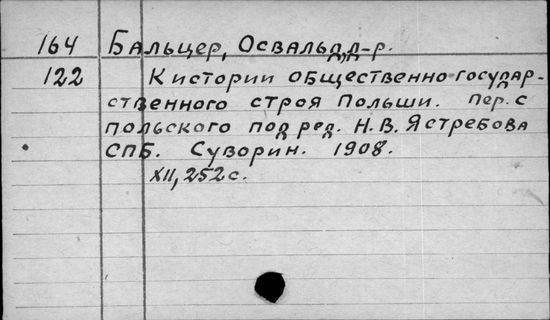 164 Бальцер, Освальд, д-р.
122 К истории общественно-государ-
ственного строя Польши. Пер. с
польского под ред. Н. В. Ястребова
СПБ. Суворин. 1908.
XII, 252 с.